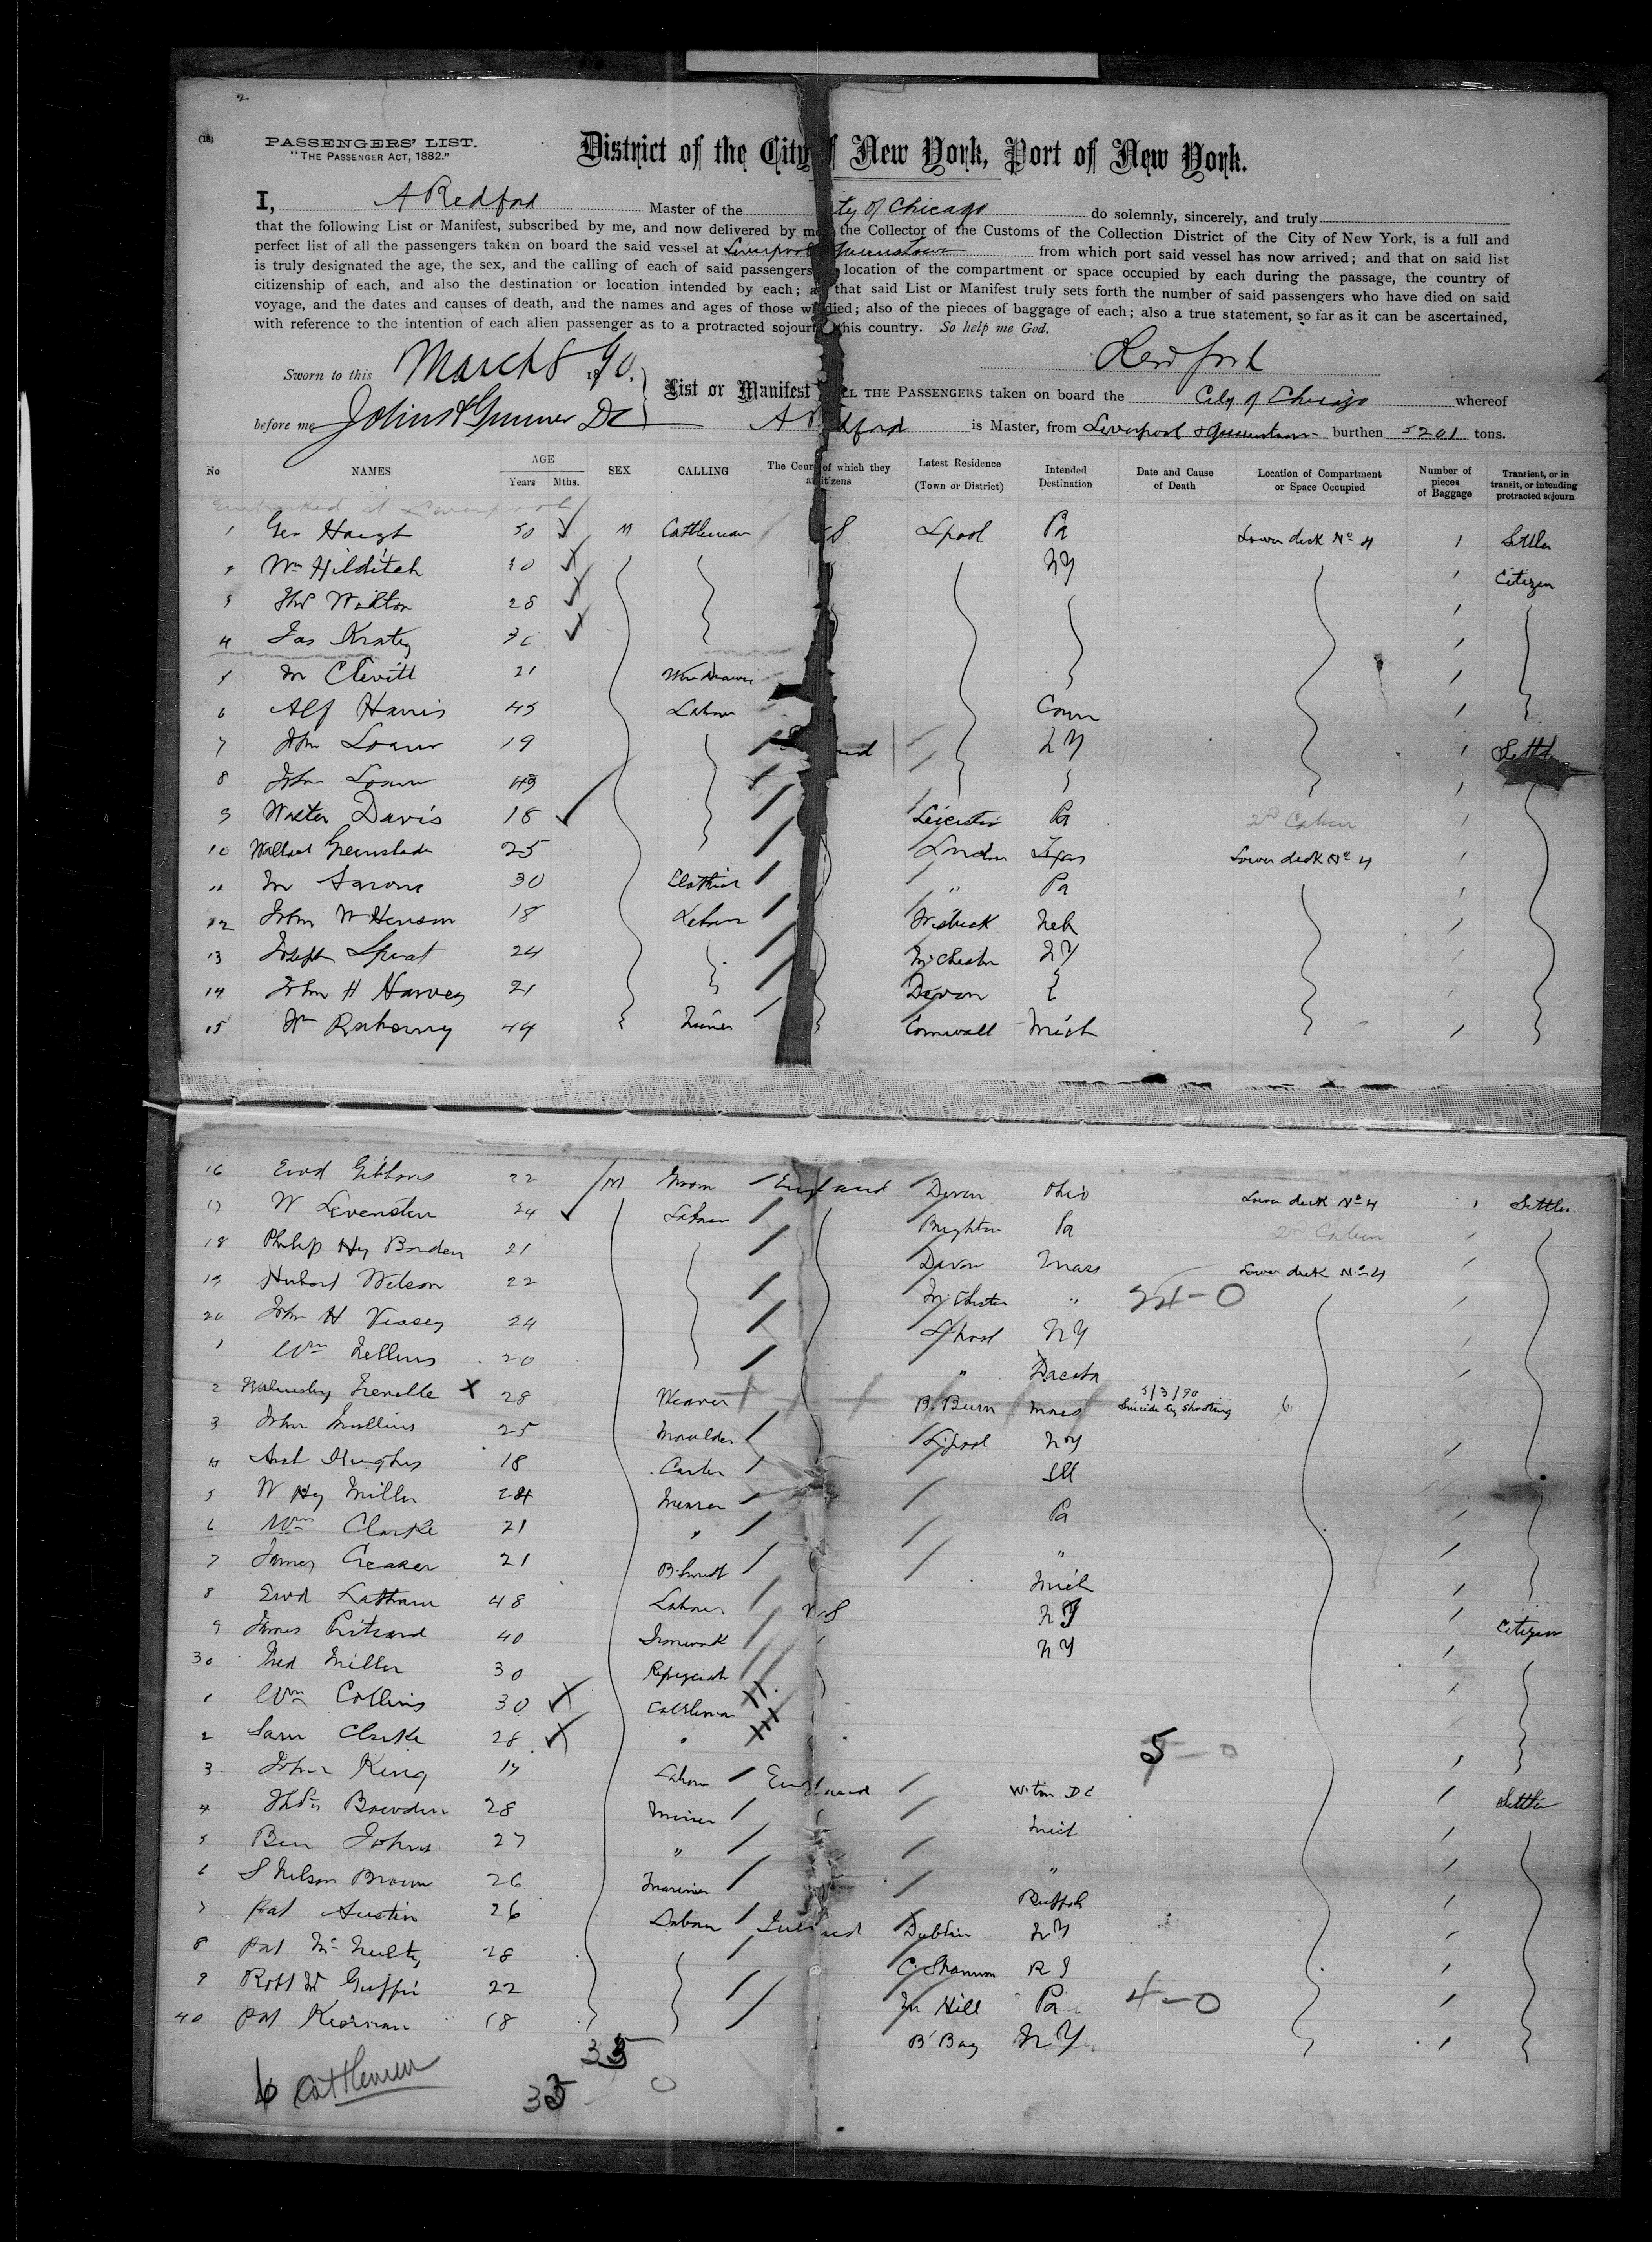 PASSENGERS' LIST.
"THE PASSENGER ACT, 1882."
District of the City of New York, Port of New York.
I, A Redford Master of the City of Chicago do solemnly, sincerely, and truly
that the following List or Manifest, subscribed by me, and now delivered by me the Collector of the Customs of the Collection District of the City of New York, is a full and
perfect list of all the passengers taken on board the said vessel at Liverpool Queenstown from which port said vessel has now arrived; and that on said list
is truly designated the age, the sex, and the calling of each of said passengers location of the compartment or space occupied by each during the passage, the country of
citizenship of each, and also the destination or location intended by each; that said List or Manifest truly sets forth the number of said passengers who have died on said
voyage, and the dates and causes of death, and the names and ages of those who died; also of the pieces of baggage of each; also a true statement, so far as it can be ascertained,
with reference to the intention of each alien passenger as to a protracted sojourn this country. So help me God.
Redford
Sworn to this March 8 1890.
List or Manifest ALL THE PASSENGERS taken on board the City of Chicago whereof
before me A Redford is Master, from Liverpool & Queenstown burthen 5201 tons.
No NAMES AGE Years Mths. SEX CALLING The Country of which they are citizens Latest Residence (Town or District) Intended Destination Date and Cause of Death Location of Compartment or Space Occupied Number of pieces of Baggage Transient, or in transit, or intending protracted sojourn
Embarked at Liverpool
1 Geo Haigh 50 M Cattleman S L'pool Pa Lower deck No 4 1 Settler
2 Wm Hilditch 30 NY 1 Citizen
3 Thos 28 1
4 Jas 1
5 21 1
6 Alf Harris 45 Labour Conn 1
7 John 19 NY 1 Settler
8 John 1
9 Walter Davis 18 Leicester Pa 2nd Cabin 1
10 25 London Texas Lower deck No 4 1
11 30 Clothier " Pa 1
12 John W Henson 18 Labour Wisbeck Neb 1
13 Joseph 24 M'Chester NY 1
14 John H Harvey 21 Devon 1
15 Wm 44 Miner Cornwall Mich 1
16 Ewd Gibbons 22 M Groom England Devon Ohio Lower deck No 4 1 Settler
17 W Levensten 24 Labour Brighton Pa 2nd Cabin 1
18 Philip Hy Borden 21 Devon Mass Lower deck No 4 1
19 Herbert Wilson 22 M'Chester " 24-0 1
20 John H Veasey 24 L'pool NY 1
1 Wm 20 " Dacota 1
2 X 28 Weaver B. Burn Mass 5/3/90 Suicide by Shooting
3 John Mullins 25 Moulder L'pool NY 1
4 Hughes 18 Carter Ill
5 W Hy Miller 24 Pa 1
6 Wm Clarke 21 " " 1
7 James 21 B. Smith Mich 1
8 Ewd Latham 48 Labour U S NY 1 Citizen
9 James Pritsard 40 Ironwork NY 1
30 Fred Miller 30
1 Wm Collins 30 Cattleman
2 Saml Clarke 28 " 5-0
3 John King Labour England W'ton DC 1 Settler
4 Thos Bowden 28 Miner Mich 1
5 Ben Johns 27 " " 1
6 S Nelson Brown 26 Mariner 1
7 Pat Austin 26 Labour Ireland Dublin NY 1
8 Pat McNulty 28 C. Shannon R I 1
9 Robt 22 M Hill Pa 4-0 1
40 Pat Kiernan 18 B'Bay N.Y. 1
6 Cattlemen